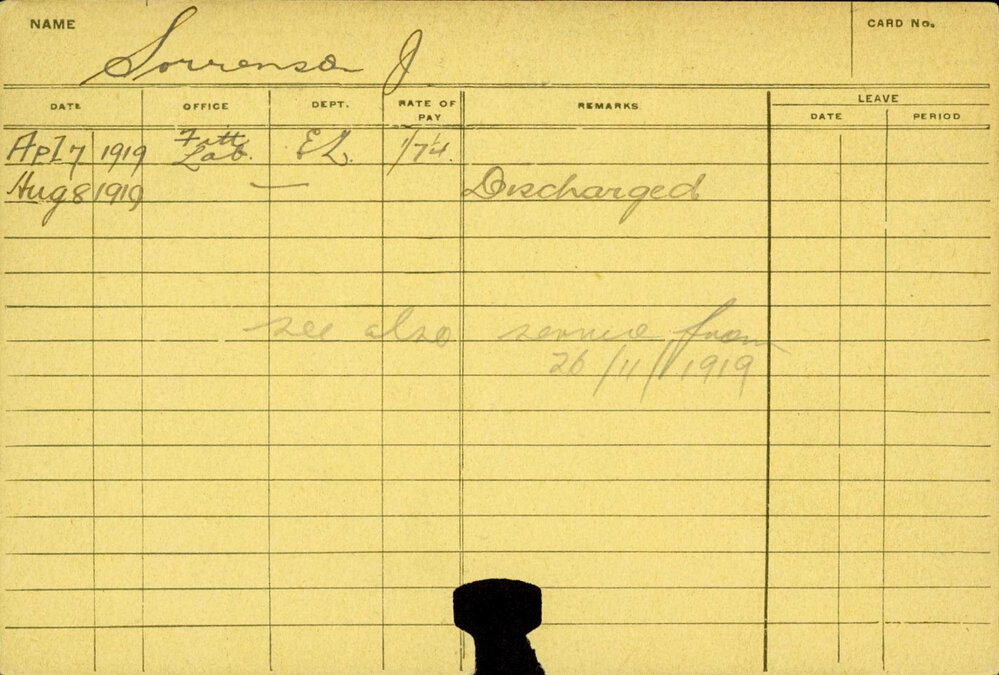 NAME Sorrenson J CARD No.
DATE OFFICE DEPT. RATE OF PAY REMARKS LEAVE
DATE PERIOD
Apl 7 1919 Fitt Lab. EL 1/7¼
Aug 8 1919 — Discharged
see also service from
26/11/1919